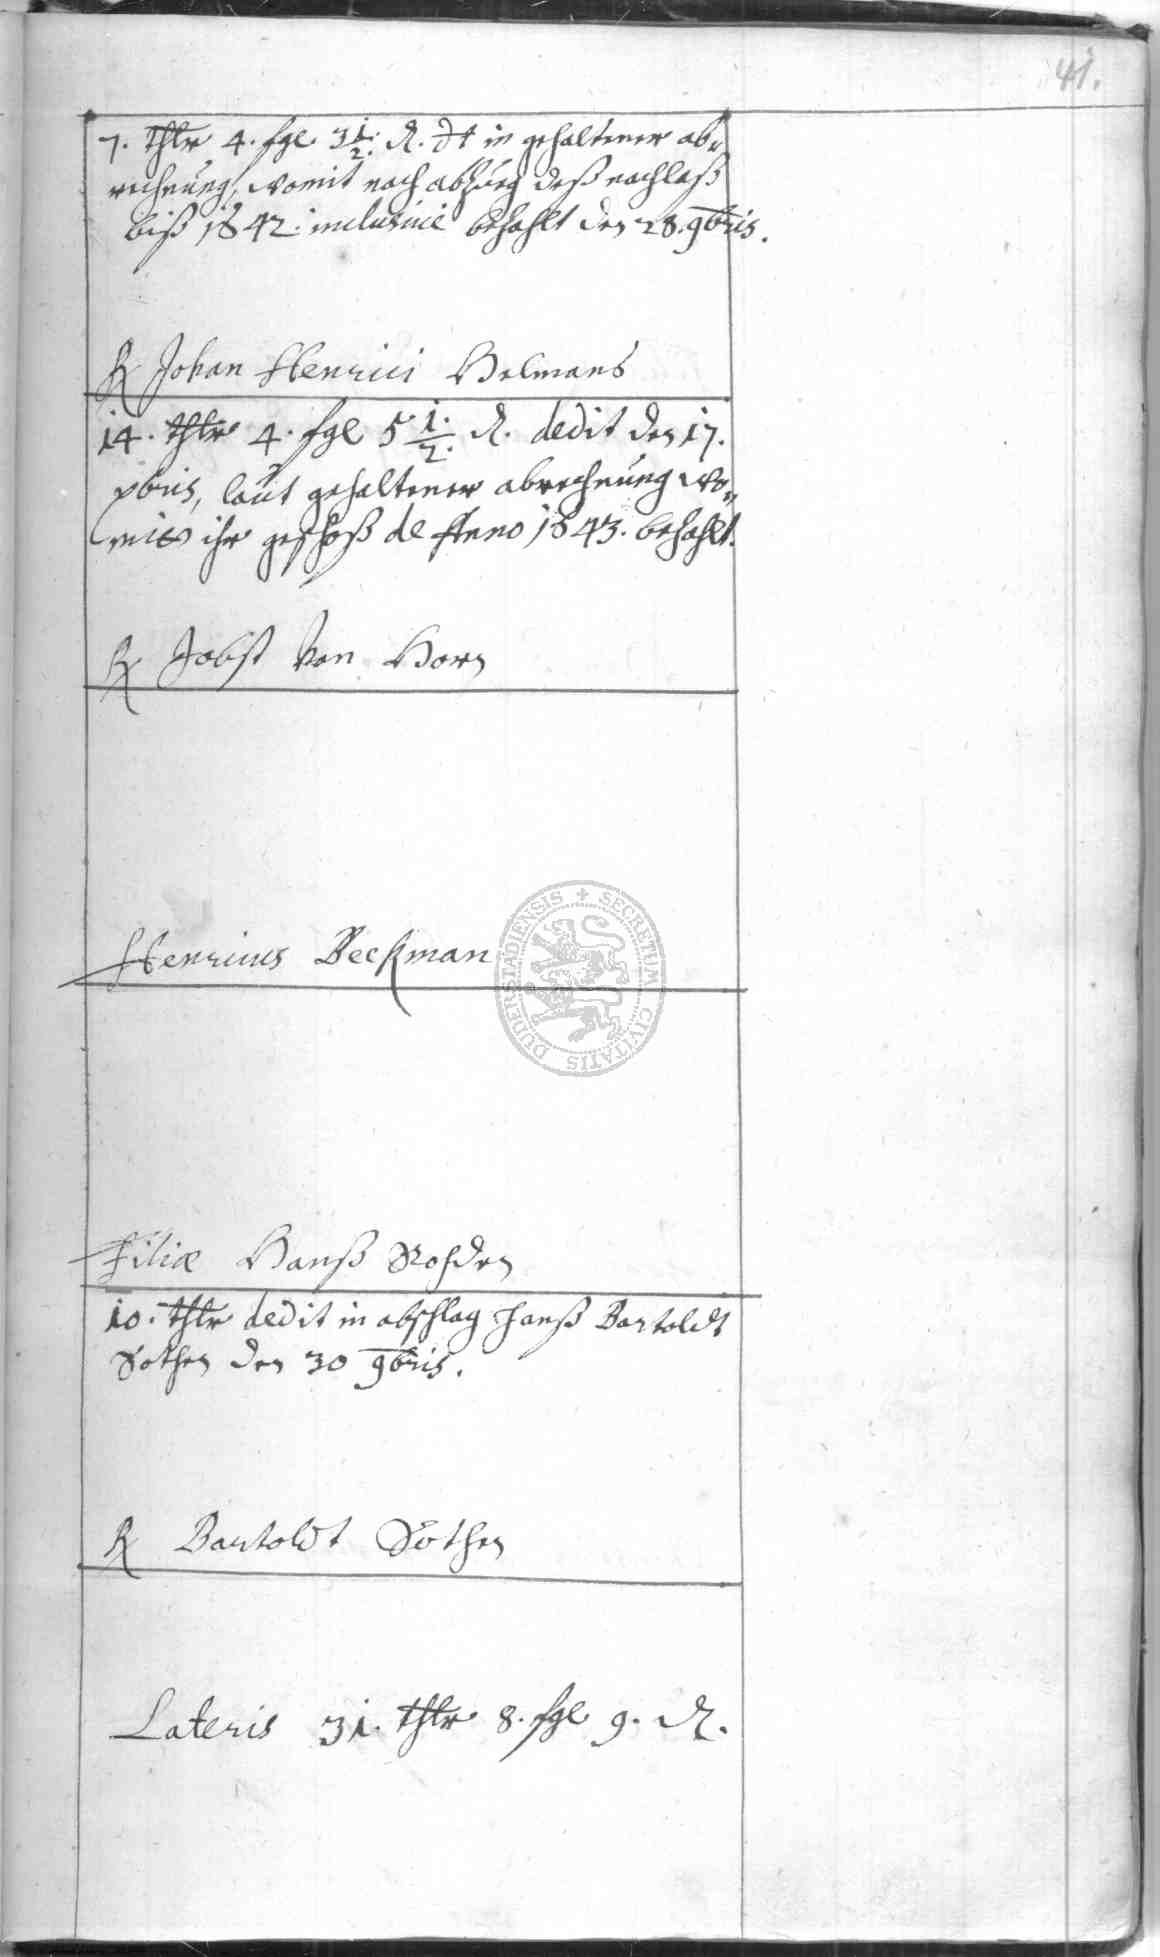 41.
7. thlr 4. sgl. 3 1/2. d. dt in gehaltener ab„
rechnung, womit nach abzueg deß nachlaß
biß 1642. inclusivé bezahlt den 28. 9bris.
R Johan Henrici Helmans
14. thlr 4. sgl 5 1/2. d. dedit den 17.
xbris, laut gehaltener abrechnung wo„
mit ihr geschoß de Anno 1643. bezahlt.
R Jobst Von Horn
Henricus Beckman
Filiæ Hanß Rohden
10. thlr dedit in abschlag Hanß Bartoldt
Sothen den 30 9bris.
R Bartoldt Sothen
Lateris 31. thlr 8. sgl 9. d.
SECRETUM CIVITATIS DUDERSTADIENSIS